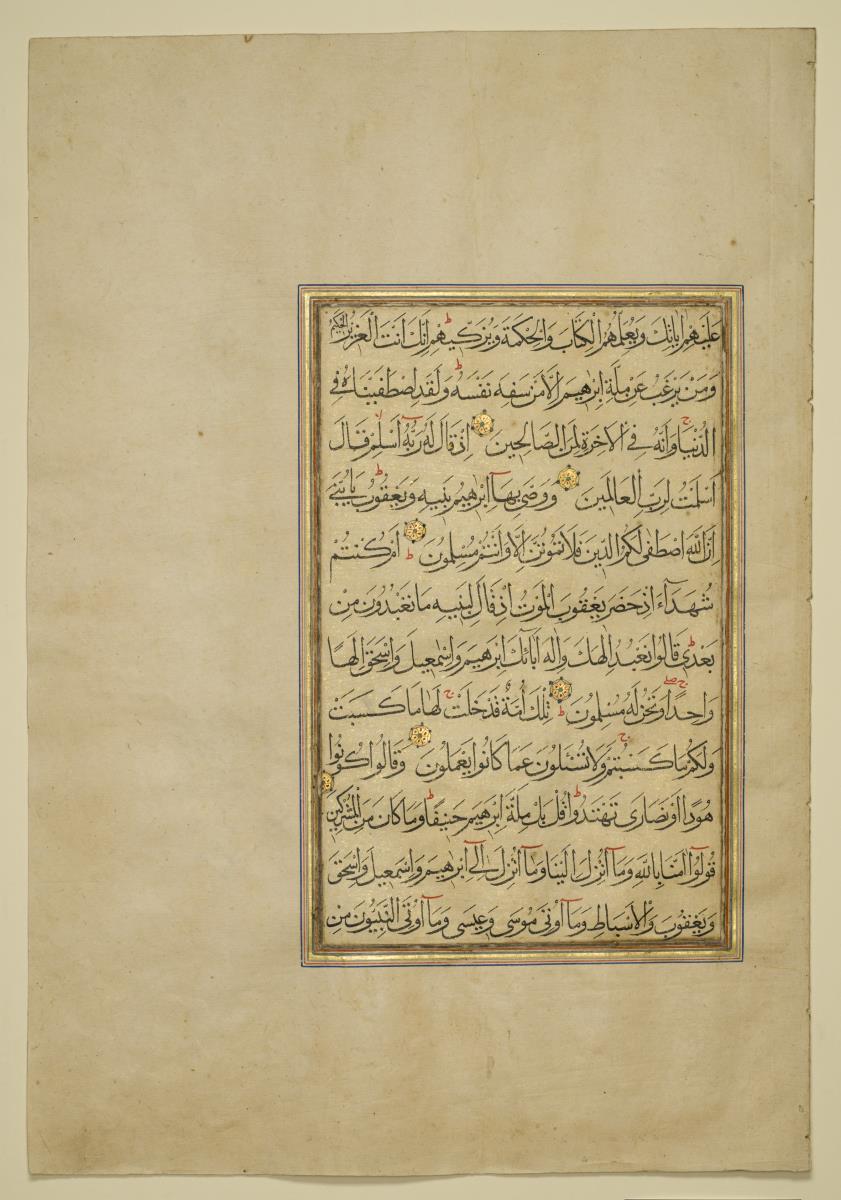 عَلَيْهِمْ اٰيَاتِكَ وَيُعَلِّمُهُمُ الْكِتَابَ وَالْحِكْمَةَ وَيُزَكِّيهِمْ ط اِنَّكَ اَنْتَ الْعَزِيزُ الْحَكِيمُ
وَمَنْ يَرْغَبُ عَنْ مِلَّةِ اِبْرٰهِيمَ اِلَّا مَنْ سَفِهَ نَفْسَهُ ط وَلَقَدِ اصْطَفَيْنَاهُ فِي
الدُّنْيَا ج وَاِنَّهُ فِي الْاٰخِرَةِ لَمِنَ الصَّالِحِينَ اِذْ قَالَ لَهُ رَبُّهُٓ اَسْلِمْ لا قَالَ
اَسْلَمْتُ لِرَبِّ الْعَالَمِينَ وَوَصّٰى بِهَٓا اِبْرٰهِيمُ بَنِيهِ وَيَعْقُوبُ ط يَا بَنِيَّ
اِنَّ اللّٰهَ اصْطَفٰى لَكُمُ الدِّينَ فَلَا تَمُوتُنَّ اِلَّا وَاَنْتُمْ مُسْلِمُونَ ط اَمْ كُنْتُمْ
شُهَدَٓاءَ اِذْ حَضَرَ يَعْقُوبَ الْمَوْتُ اِذْ قَالَ لِبَنِيهِ مَا تَعْبُدُونَ مِنْ
بَعْدِي ط قَالُوا نَعْبُدُ اِلٰهَكَ وَاِلٰهَ اٰبَٓائِكَ اِبْرٰهِيمَ وَاِسْمٰعِيلَ وَاِسْحٰقَ اِلٰهًا
وَاحِدًا ج صلے وَنَحْنُ لَهُ مُسْلِمُونَ ط تِلْكَ اُمَّةٌ قَدْ خَلَتْ ج لَهَا مَا كَسَبَتْ
وَلَكُمْ مَا كَسَبْتُمْ ج وَلَا تُسْئَلُونَ عَمَّا كَانُوا يَعْمَلُونَ وَقَالُوا كُونُوا
هُودًا اَوْ نَصَارٰى تَهْتَدُوا ط قُلْ بَلْ مِلَّةَ اِبْرٰهِيمَ حَنِيفًا ط وَمَا كَانَ مِنَ الْمُشْرِكِينَ
قُولُٓوا اٰمَنَّا بِاللّٰهِ وَمَٓا اُنْزِلَ اِلَيْنَا وَمَٓا اُنْزِلَ اِلٰٓى اِبْرٰهِيمَ وَاِسْمٰعِيلَ وَاِسْحٰقَ
وَيَعْقُوبَ وَالْاَسْبَاطِ وَمَٓا اُوتِيَ مُوسٰى وَعِيسٰى وَمَٓا اُوتِيَ النَّبِيُّونَ مِنْ